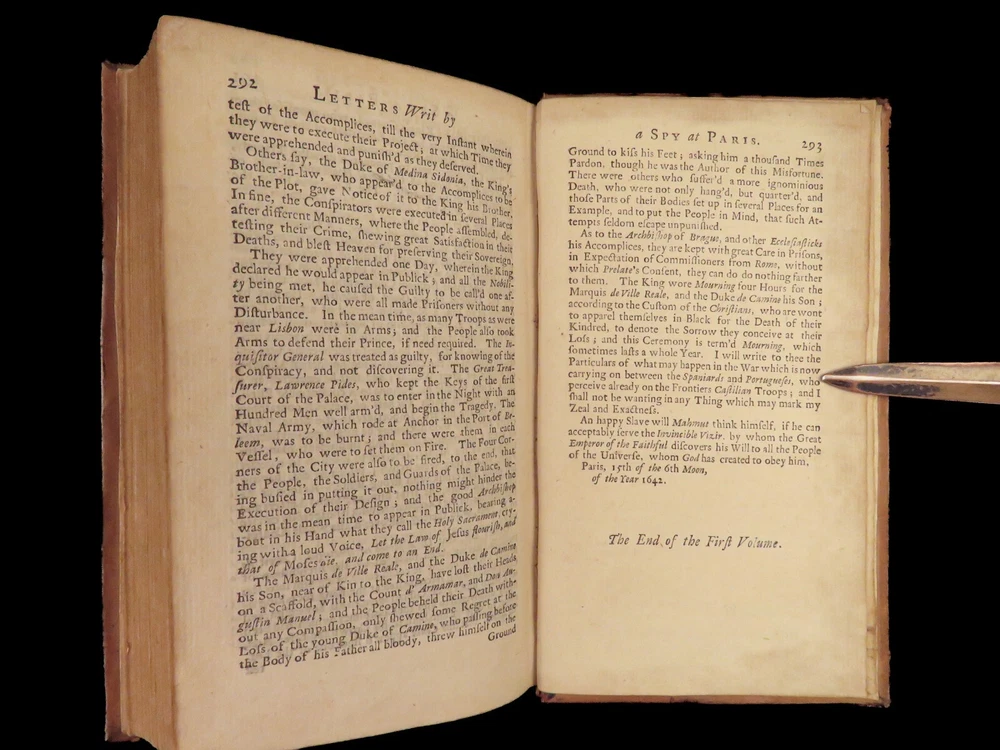 292
LETTERS Writ by
teſt of the Accomplices, till the very Inſtant wherein
they were to execute their Project; at which Time they
were apprehended and puniſh'd as they deſerved.
Others ſay, the Duke of Medina Sidonia, the King's
Brother-in-law, who appear'd to the Accomplices to be
of the Plot, gave Notice of it to the King his Brother,
In fine, the Conſpirators were executed in ſeveral Places
after different Manners, where the People aſſembled, de-
teſting their Crime, ſhewing great Satisfaction in their
Deaths, and bleſt Heaven for preſerving their Sovereign,
They were apprehended one Day, wherein the King
declared he would appear in Publick; and all the Nobili-
ty being met, he cauſed the Guilty to be call'd one af-
ter another, who were all made Priſoners without any
Diſturbance. In the mean time, as many Troops as were
near Lisbon were in Arms; and the People alſo took
Arms to defend their Prince, if need required. The In-
quiſitor General was treated as guilty, for knowing of the
Conſpiracy, and not diſcovering it. The Great Trea-
ſurer, Lawrence Pides, who kept the Keys of the firſt
Court of the Palace, was to enter in the Night with an
Hundred Men well arm'd, and begin the Tragedy. The
Naval Army, which rode at Anchor in the Port of Be-
leem, was to be burnt; and there were them in each
Veſſel, who were to ſet them on Fire. The Four Cor-
ners of the City were alſo to be fired, to the end, that
the People, the Soldiers, and Guards of the Palace, be-
ing buſied in putting it out, nothing might hinder the
Execution of their Deſign; and the good Archbiſhop
was in the mean time to appear in Publick, bearing a-
bout in his Hand what they call the Holy Sacrament, cry-
ing with a loud Voice, Let the Law of Jeſus flouriſh, and
that of Moſes die, and come to an End.
The Marquis de Ville Reale, and the Duke de Camine
his Son, near of Kin to the King, have loſt their Heads
on a Scaffold, with the Count d' Armamar, and Don Au-
guſtin Manuel; and the People beheld their Death with-
out any Compaſſion, only ſhewed ſome Regret at the
Loſs of the young Duke of Camine, who paſſing before
the Body of his Father all bloody, threw himſelf on the
Ground
a SPY at PARIS.
293
Ground to kiſs his Feet; asking him a thouſand Times
Pardon, though he was the Author of this Misfortune.
There were others who ſuffer'd a more ignominious
Death, who were not only hang'd, but quarter'd, and
thoſe Parts of their Bodies ſet up in ſeveral Places for an
Example, and to put the People in Mind, that ſuch At-
tempts ſeldom eſcape unpuniſhed.
As to the Archbiſhop of Brague, and other Eccleſiaſticks
his Accomplices, they are kept with great Care in Priſons,
in Expectation of Commiſſioners from Rome, without
which Prelate's Conſent, they can do do nothing farther
to them. The King wore Mourning four Hours for the
Marquis de Ville Reale, and the Duke de Camine his Son;
according to the Cuſtom of the Chriſtians, who are wont
to apparel themſelves in Black for the Death of their
Kindred, to denote the Sorrow they conceive at their
Loſs; and this Ceremony is term'd Mourning, which
ſometimes laſts a whole Year. I will write to thee the
Particulars of what may happen in the War which is now
carrying on between the Spaniards and Portugueſes, who
perceive already on the Frontiers Caſtilian Troops; and I
ſhall not be wanting in any Thing which may mark my
Zeal and Exactneſs.
An happy Slave will Mahmut think himſelf, if he can
acceptably ſerve the Invincible Vizir, by whom the Great
Emperor of the Faithful diſcovers his Will to all the People
of the Univerſe, whom God has created to obey him.
Paris, 15th of the 6th Moon,
of the Year 1642.
The End of the Firſt Volume.